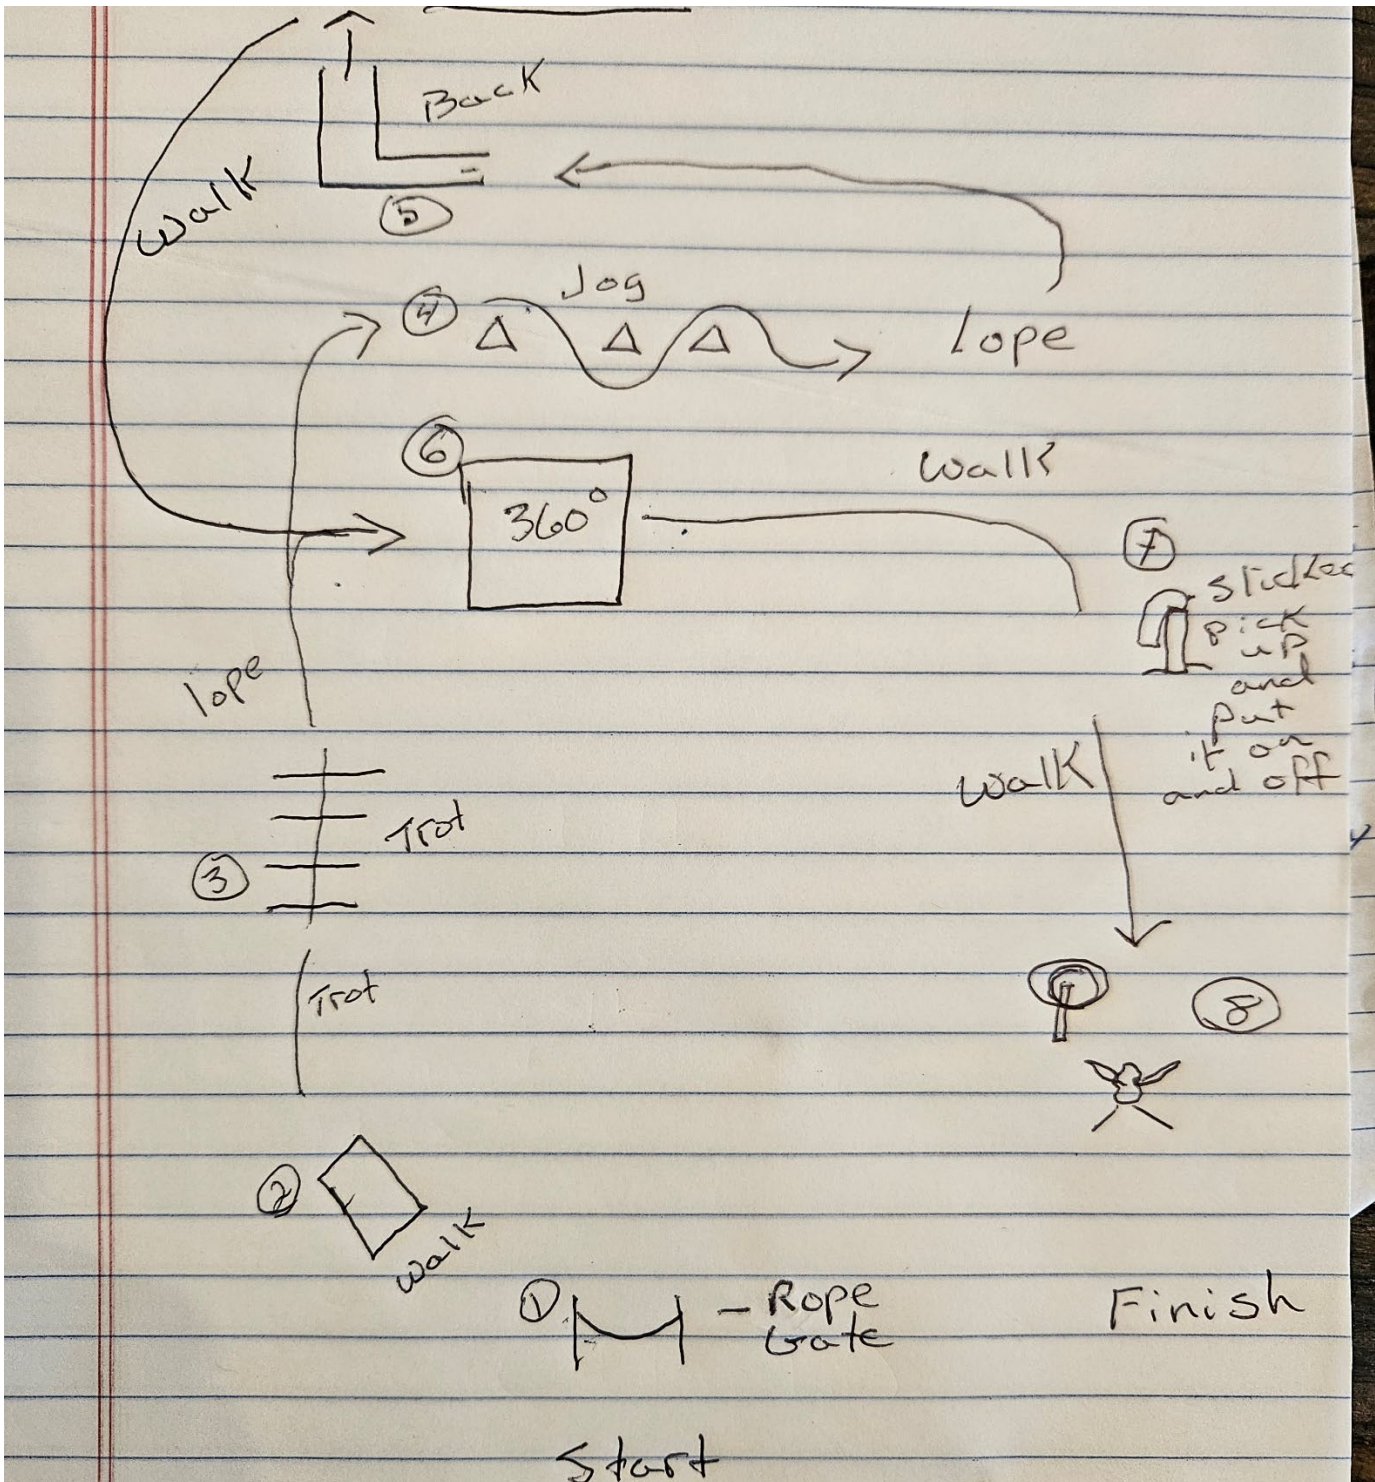 Back
Walk
5
Jog
4
lope
6
Walk
360°
7
slicker
pick
up
and
put
it on
and off
lope
Walk
Trot
3
Trot
8
2
Walk
1
- Rope
Gate
Finish
Start